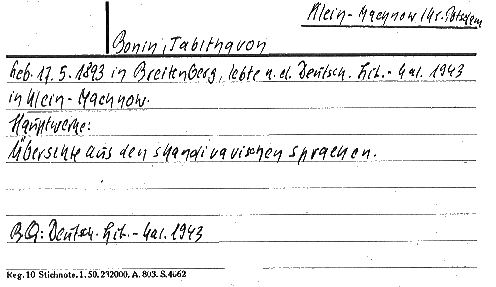 Klein-Machnow Kr. Potsdam
Bonin, Tabitha von
Geb. 17.5.1893 in Breitenberg, lebte n. d. Deutsch. Lit.-Kal. 1943
in Klein-Machnow.
Hauptwerke:
Übersetzte aus den skandinavischen Sprachen.
BQ: Deutsch. Lit.-Kal. 1943
Reg. 10 Stichnote. 1. 50. 232000. A. 803. S. 4662